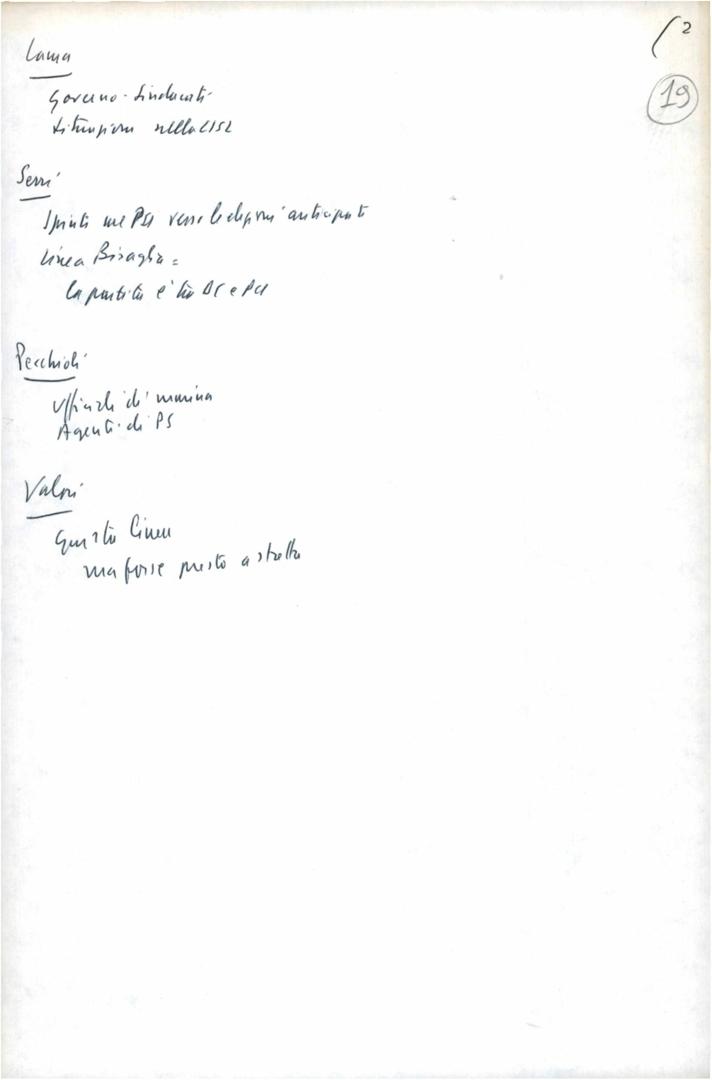 2
19
Lama
Governo-Sindacati
Situazione nella CISL
Serri
Spinta nel PSI verso le elezioni anticipate
Linea Bisaglia =
la partita è tra DC e PCI
Pecchioli
Ufficiali di marina
Agenti di PS
Valori
Giusta linea
ma forse presto a stretta